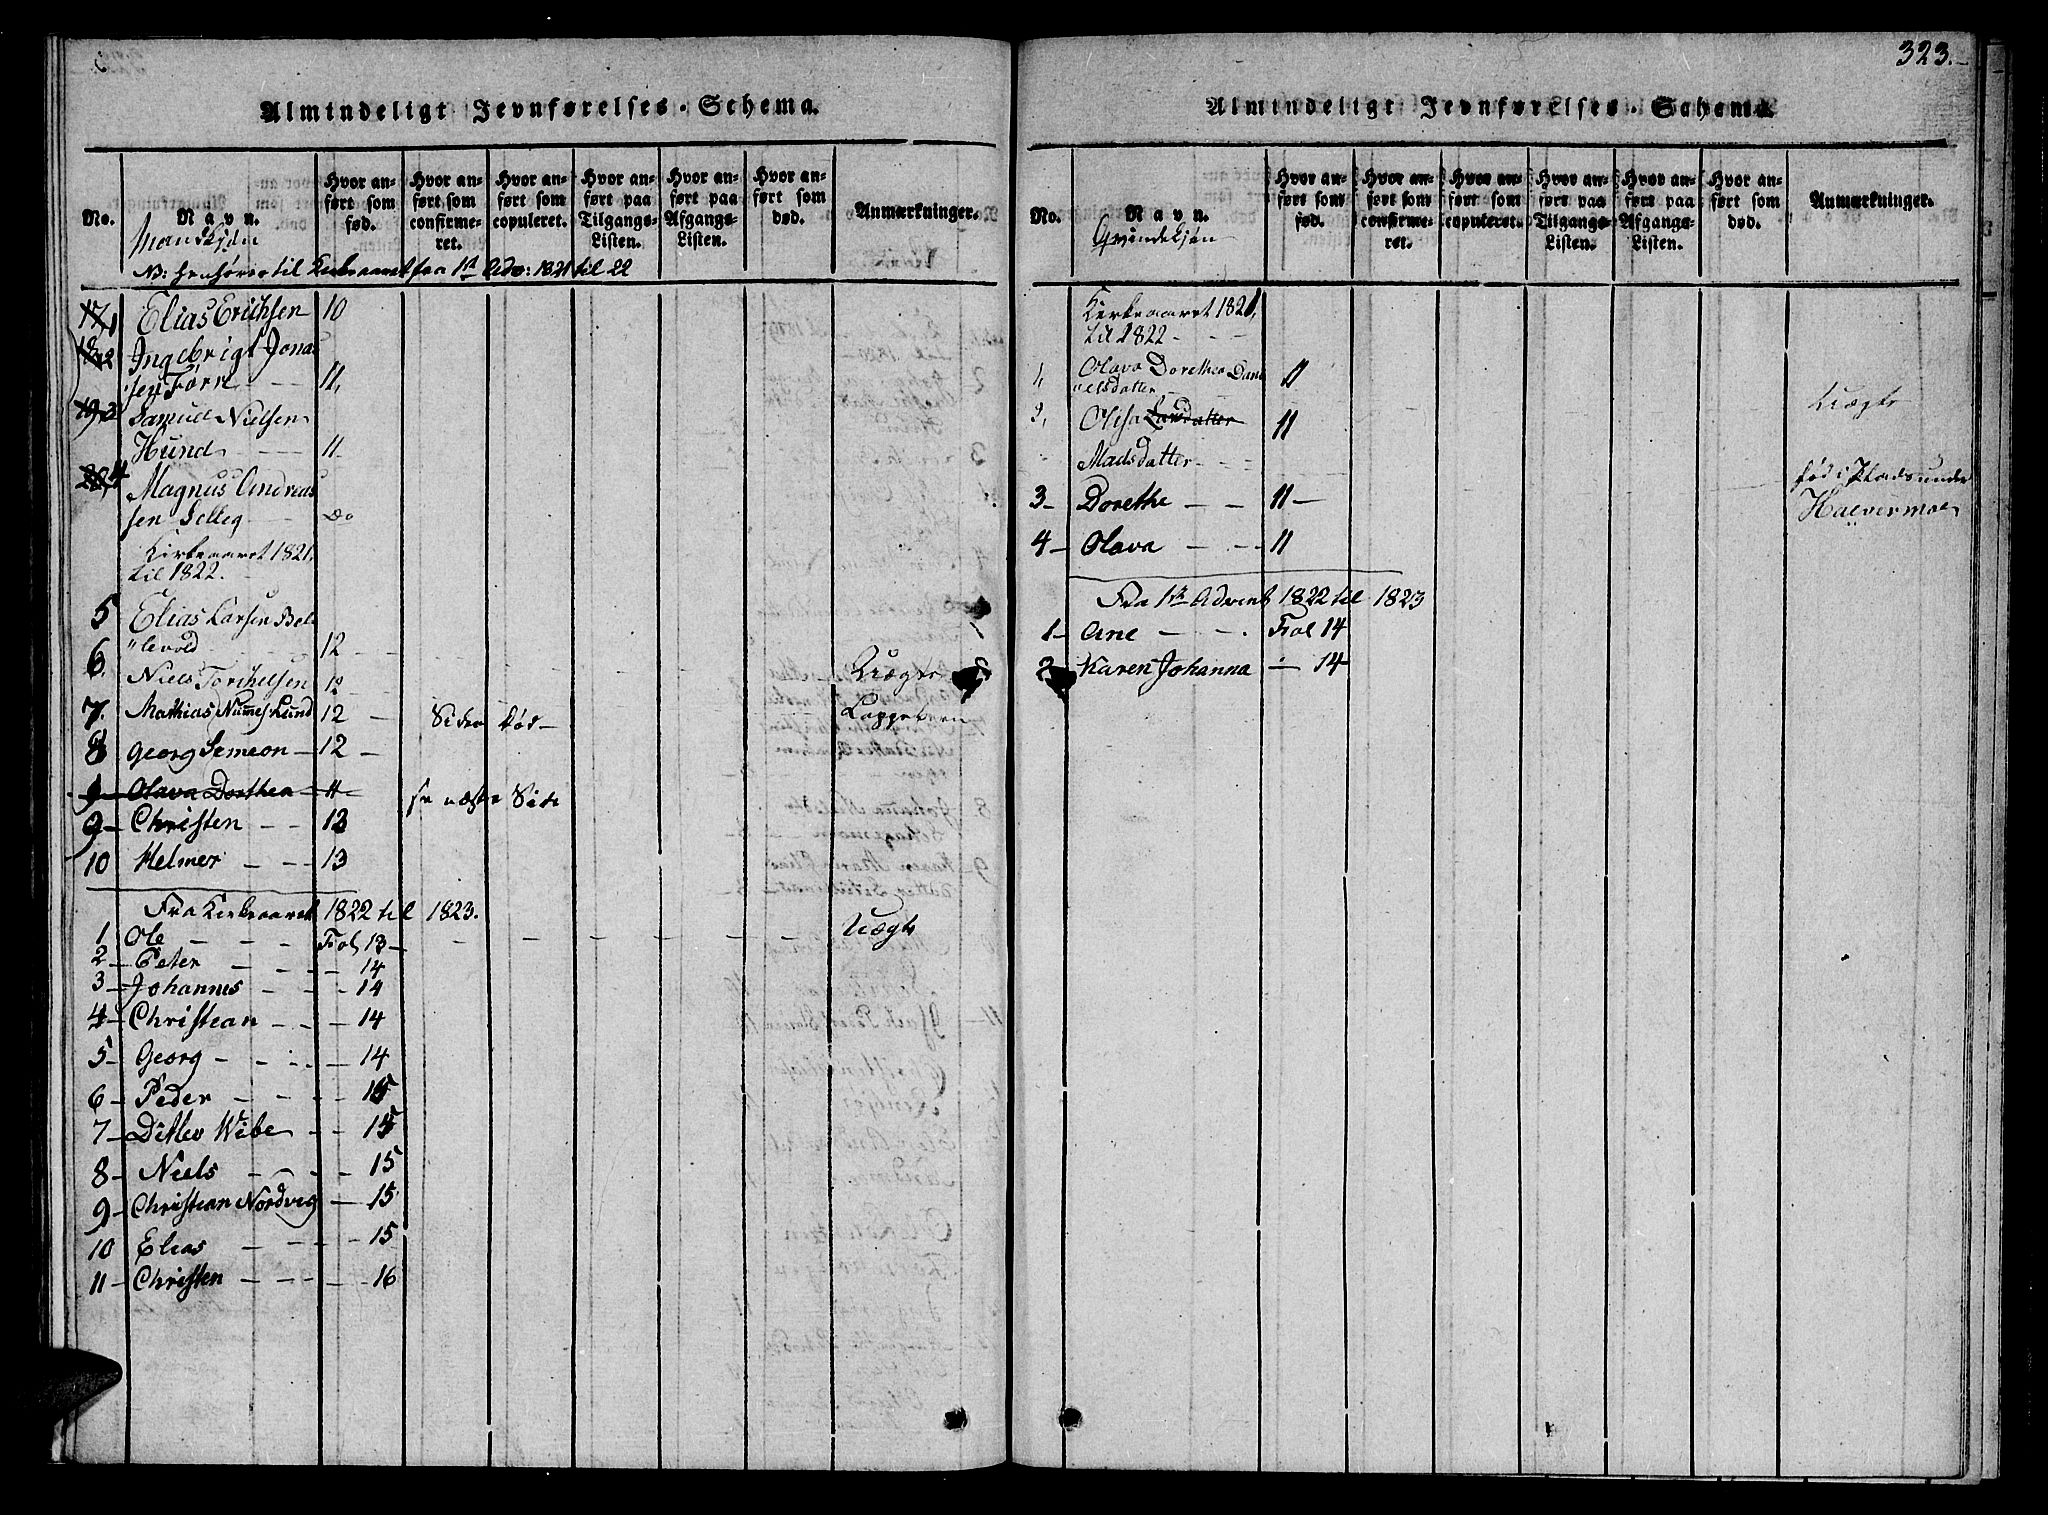 323.
Almindeligt Jevnførelses-Schema.
No.
Navn.
Mandkjøn
Hvor anført som fød.
Hvor anført som confirmeret.
Hvor anført som copuleret.
Hvor anført paa Tilgangs-Listen.
Hvor anført paa Afgangs-Listen.
Hvor anført som død.
Anmærkninger.
NB: henhører til Kirkeaaret fra 1st Adv: 1821 til 22
17, 1 Elias Erichsen 10
18, 2 Ingebrigt Jona
sen Törn - - 11,
19, 3 Samuel Nielsen
Hund - - 11-
20, 4 Magnus Andreas
sen Selleg - - do
Kirkeaaret 1821,
til 1822.
5 Elias Larsen Bel
levold - - 12 -
6. Niels Torchelsen 12 - - Uægte
7. Mathias Numes Lund 12 - Siden Død - Lappebarn
8 Georg Simeon - 12 -
9 Olava Dorthea - 11 - se næste Side
9- Christen - - 12
10 Helmer - - - 13
Fra Kirkeaaret 1822 til 1823.
1 Ole - - - Fol. 13 - - - - - Uægte
2- Peter - - - - 14
3- Johannes - - - 14
4- Christian - - - 14
5- Georg - - - - 14
6- Peder - - - - 15
7- Ditlev Wibe - - 15
8- Niels - - - - 15
9- Christian Nordvig - 15
10 Elias - - - - 15
11- Christen - - - - 16
Almindeligt Jevnførelses-Schema.
No.
Navn.
Qvindekjøn
Hvor anført som fød.
Hvor anført som confirmeret.
Hvor anført som copuleret.
Hvor anført paa Tilgangs-Listen.
Hvor anført paa Afgangs-Listen.
Hvor anført som død.
Anmærkninger.
Kirkeaaret 1821,
til 1822 - - -
1, Olava Dorethea Dani
elsdatter 11
Uægte
2, Olisa Larsdatter 11
Madsdatter - - - fød i Pladsen under
3- Dorethe - - 11- Halvermoe
4- Olava - - - 11
Fra 1ste Advent 1822 til 1823
1- Ane - - - Fol 14
2 Karen Johanna - 14